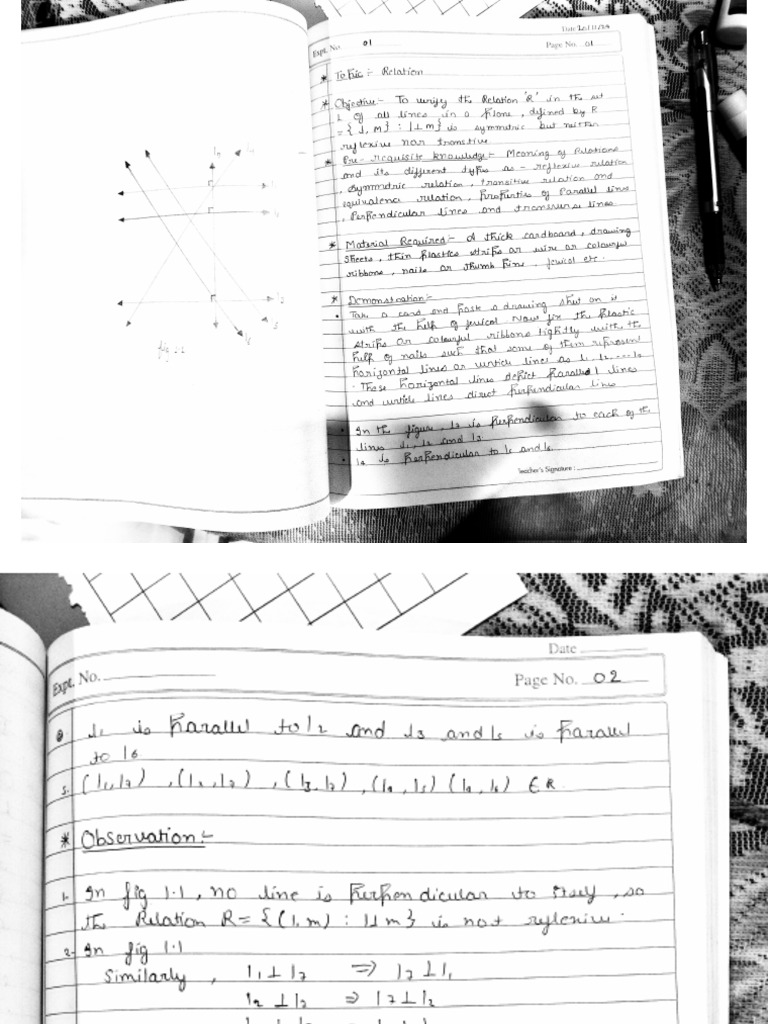 Date
Expt. No. 01
Page No. 01
* Topic:- Relation
* Objective:- To verify the Relation 'R' in the set
L of all lines in a plane, defined by R
= { l, m} : l⊥m} is symmetric but neither
reflexive nor transtive
* Pre-requisite knowledge:- Meaning of Relations
and its different types as - reflexive relation
, symmetric relation, transitive relation and
equivalence relation, properties of Parallel lines
, Perpendicular lines and transverse lines
* Material Required:- A thick cardboard, drawing
sheets, thin plastics strips or wire or colourful
ribbons, nails or thumb pins, fevicol etc.
* Demonstration:-
• Take a card and paste a drawing sheet on is
with the help of fevicol Now fix the plastic
strips or colourful ribbons tightly with the
help of nails such that some of them represent
horizontal lines or verticle lines as l₁, l₂.....l₈
• These horizontal lines depict parallel lines
and verticle lines direct perpendicular lines
• In the figure, l₇ is perpendicular to each of the
lines l₁, l₂ and l₃
• l₄ is perpendicular to l₅ and l₆
Teacher's Signature :
fig 1.1
Date
Expt. No.
Page No. 02
l₁ is parallel to l₂ and l₃ and l₅ is parallel
to l₆
5. (l₁, l₇) , (l₂, l₇) , (l₃, l₇) , (l₄, l₅) (l₄, l₆) ∈ R
* Observation:-
1- In fig 1.1, no line is perpendicular to itself, so
the Relation R = {(l, m) : l⊥m} is not reflexive.
2- In fig 1.1
Similarly, l₁ ⊥ l₇ => l₇ ⊥ l₁
l₂ ⊥ l₇ => l₇ ⊥ l₂